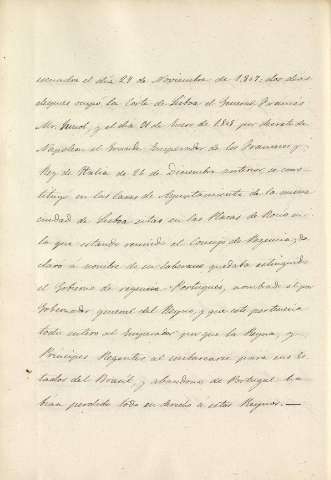 escuadra el dia 29 de Noviembre de 1807; dos dias
despues ocupó la Corte de Lisboa el General Frances
Mr. Junot, y el dia 31 de Enero de 1808 por decreto de
Napoleon el Grande Emperador de los Franceses y
Rey de Italia de 26 de Diciembre anterior, se cons-
tituyó en las Casas de Ayuntamiento de la
ciudad de Lisboa sitas en las Plazas de Rocio en
la que estando reunido el Consejo de Regencia, de-
claró á nombre de su Soberano quedaba extinguido
el Gobierno de regencia Portugues, nombrado él por
Gobernador general del Reyno, y que este pertenecia
todo entero al Emperador por que la Reyna, y
Principes Regentes al embarcarse para sus Es-
tados del Brasil, y abandona de Portugal ha-
bian perdido todo su derecho á estos Reynos.—